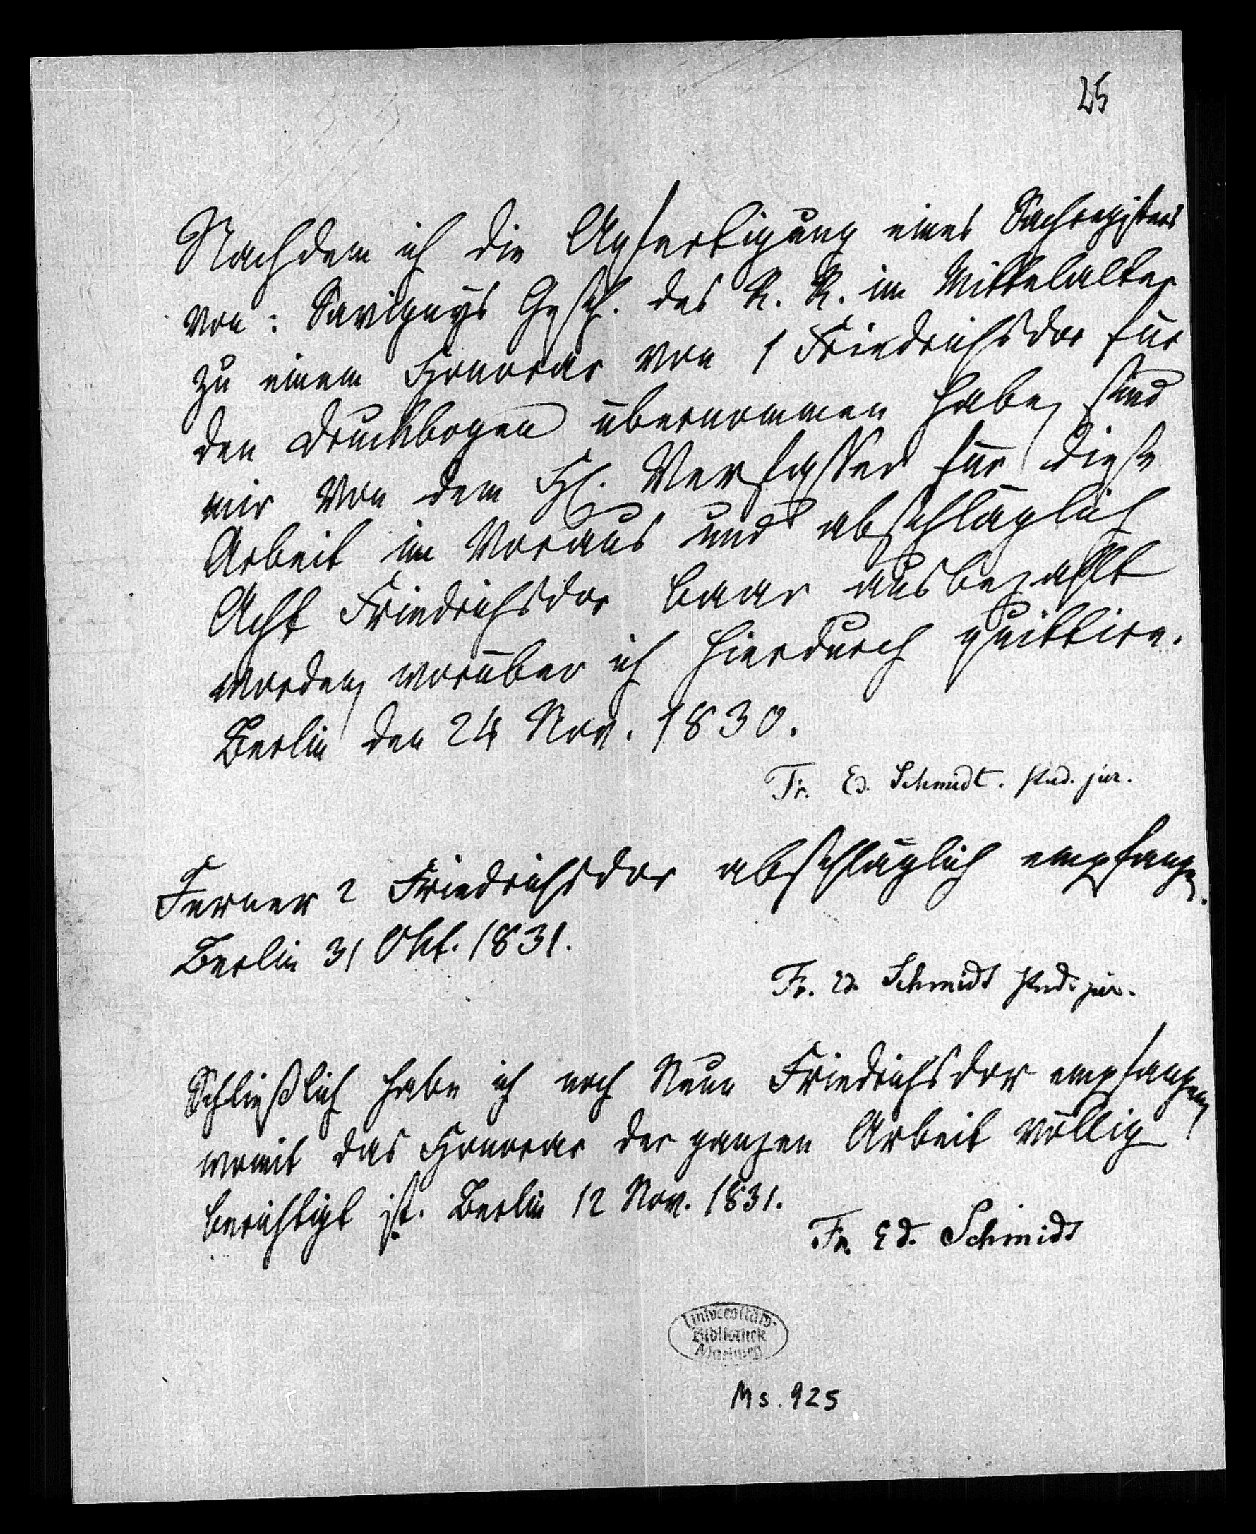 25
Nachdem ich die Anfertigung eines Sachregisters
von: Savignys Gesch. des R. R. im Mittelalter
zu einem Honorar von 1 Friedrichsdor für
den Druckbogen übernommen habe, sind
mir von dem H. Verfasser für diese
Arbeit im Voraus und abschläglich
Acht Friedrichsdor baar ausbezahlt
worden, worüber ich hierdurch quittire.
Berlin den 24 Nov. 1830.
Fr. Ed. Schmidt. stud. jur.
Ferner 2 Friedrichsdor abschläglich empfangen.
Berlin 31 Okt. 1831.
Fr. Ed. Schmidt stud. jur.
Schließlich habe ich noch Neun Friedrichsdor empfangen,
womit das Honorar der ganzen Arbeit völlig
berichtigt ist. Berlin 12 Nov. 1831.
Fr. Ed. Schmidt
Universitäts-
Bibliothek
Marburg
Ms. 925